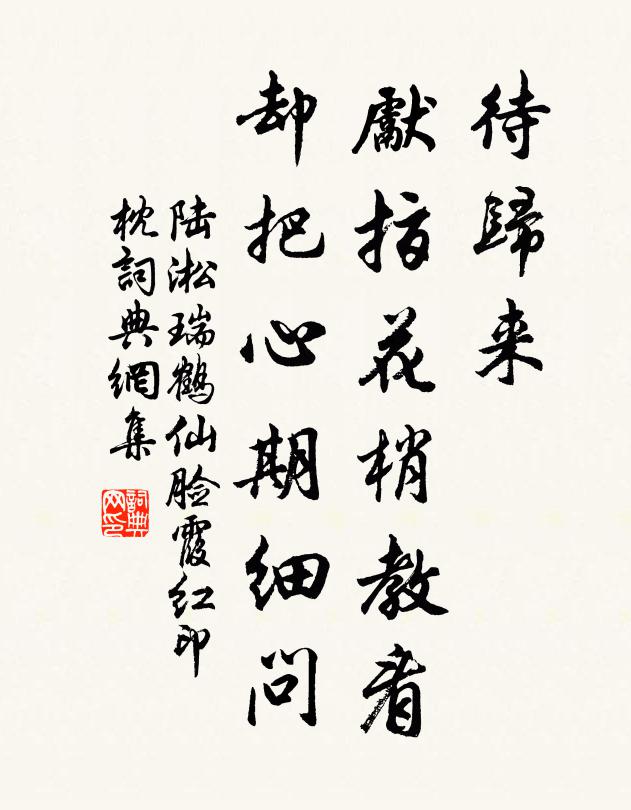 待歸来
獻指花梢教看
却把心期细問
陆淞瑞鶴仙脸霞红印
枕詞典網集
詞典
网印